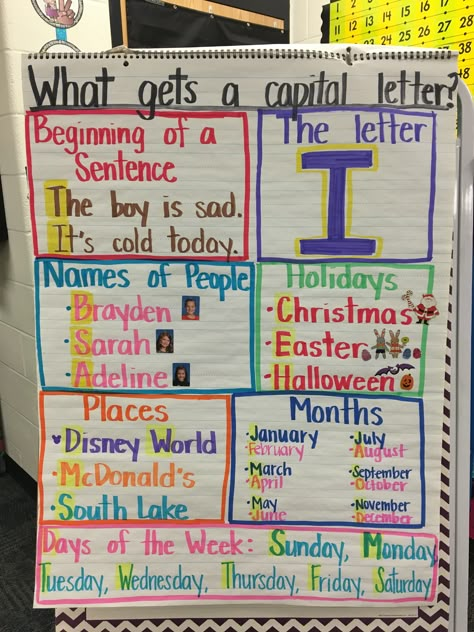 What gets a capital letter?
Beginning of a
Sentence
The boy is sad.
It's cold today.
The letter
I
Names of People
· Brayden
· Sarah
· Adeline
Holidays
· Christmas
· Easter
· Halloween
Places
Disney World
· McDonald's
· South Lake
Months
· January
· February
· March
· April
· May
· June
· July
· August
· September
· October
· November
· December
Days of the Week: Sunday, Monday
Tuesday, Wednesday, Thursday, Friday, Saturday